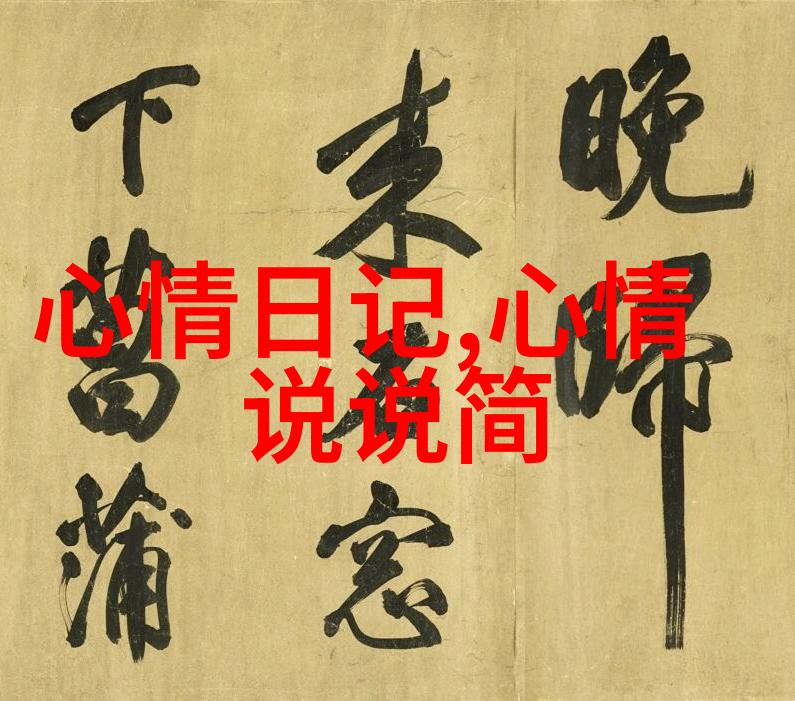 心情日记,心情
说说简
晚歸
来窓
下菖蒲